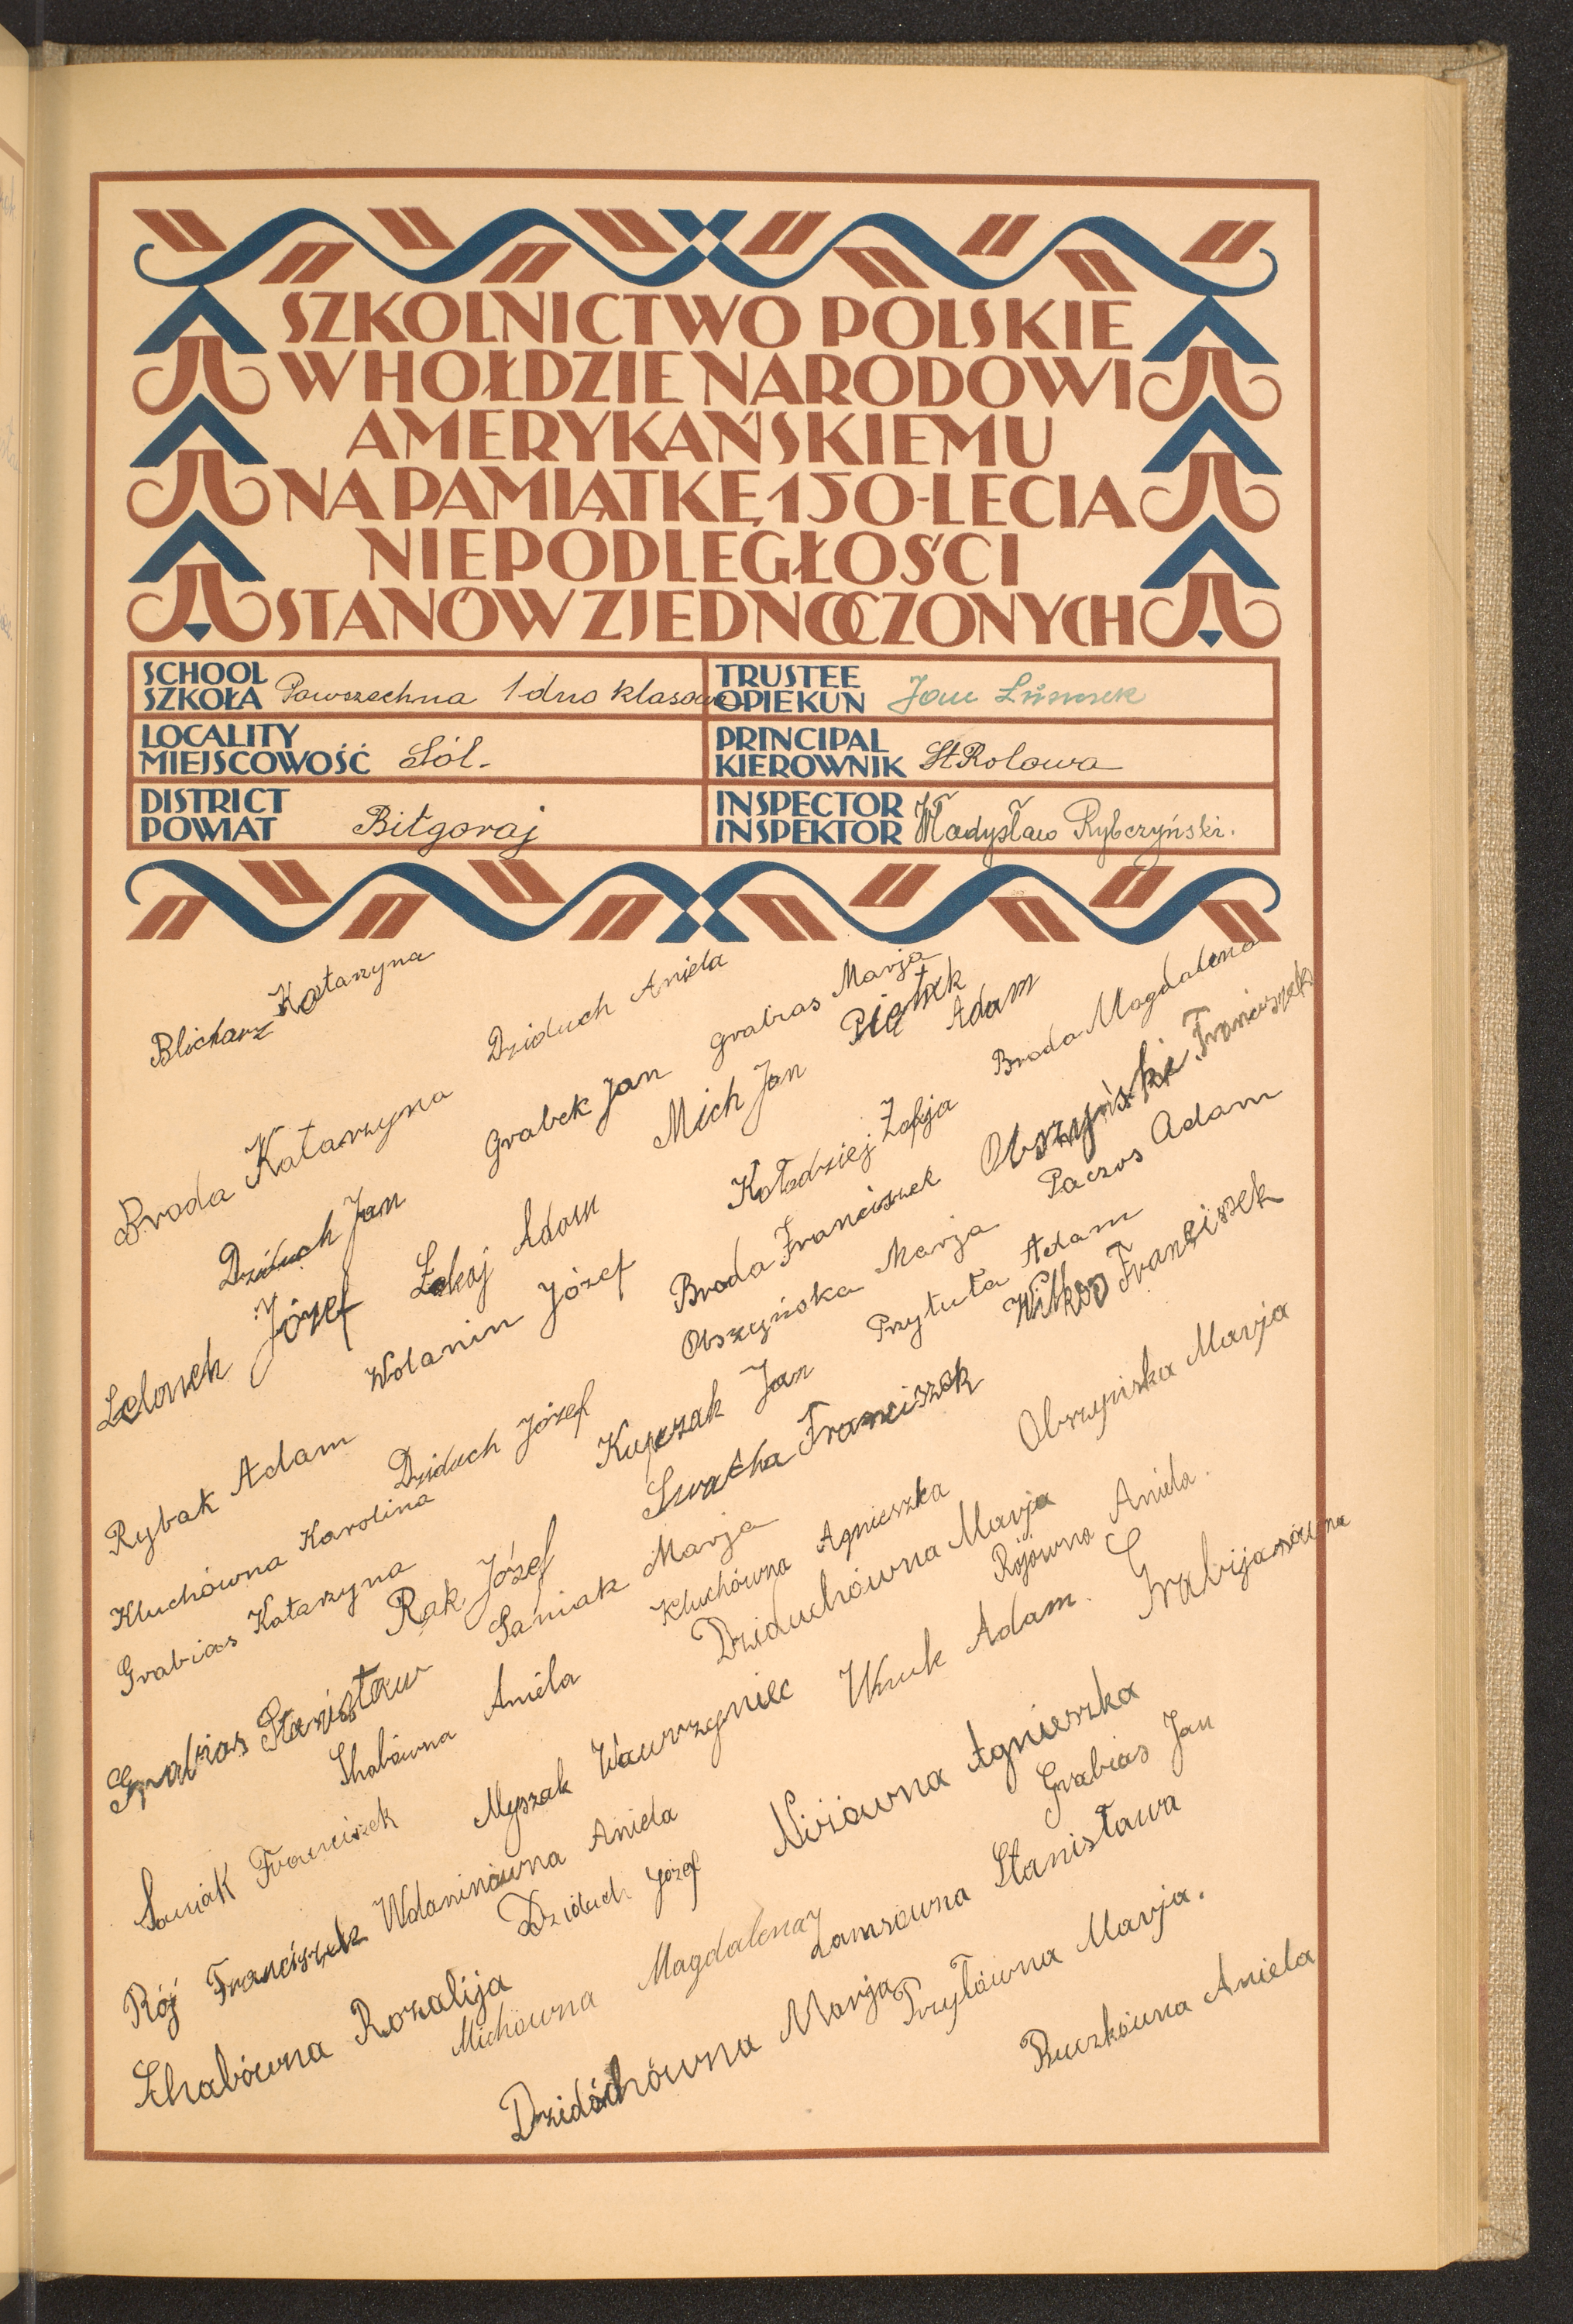 SZKOLNICTWO POLSKIE
W HOŁDZIE NARODOWI
AMERYKAŃSKIEMU
NA PAMIĄTKĘ 150-LECIA
NIEPODLEGŁOŚCI
STANÓW ZJEDNOCZONYCH
SCHOOL
SZKOŁA Powszechna 1-dno klasowa
TRUSTEE
OPIEKUN Jan
LOCALITY
MIEJSCOWOŚĆ Sól.
PRINCIPAL
KIEROWNIK St Rolowa
DISTRICT
POWIAT Biłgoraj
INSPECTOR
INSPEKTOR Władysław Rybczyński.
Blicharz Katarzyna
Broda Katarzyna
Dziduch Aniela
Dziduch Jan
Grabek Jan
Grabias Marja
Lelonek Józef
Łokaj Adam
Mich Jan
Piętak Adam
Rybak Adam
Wolanin Józef
Kołodziej Zofja
Broda Magdalena
Kluchówna Karolina
Dziduch Józef
Broda Franciszek
Obszyński Franciszek
Grabias Katarzyna
Obszyńska Marja
Paczos Adam
Rak Józef
Kupczak Jan
Przytuła Adam
Grabias Stanisław
Swacha Franciszek
Witkoś Franciszek
Saniak Marja
Shabówna Aniela
Kluchówna Agnieszka
Obszyńska Marja
Saniak Franciszek
Dziduchówna Marja
Rójówna Aniela.
Myszak Wawrzyniec
Wnuk Adam.
Grabijasówna
Rój Franciszek
Wolaninówna Aniela
Dziduch Józef
Niżówna Agnieszka
Grabias Jan
Shabówna Rozalija
Michówna Magdalena
Łamsówna Stanisława
Dzidóchówna Marja
Przytówna Marja.
Buczkówna Aniela